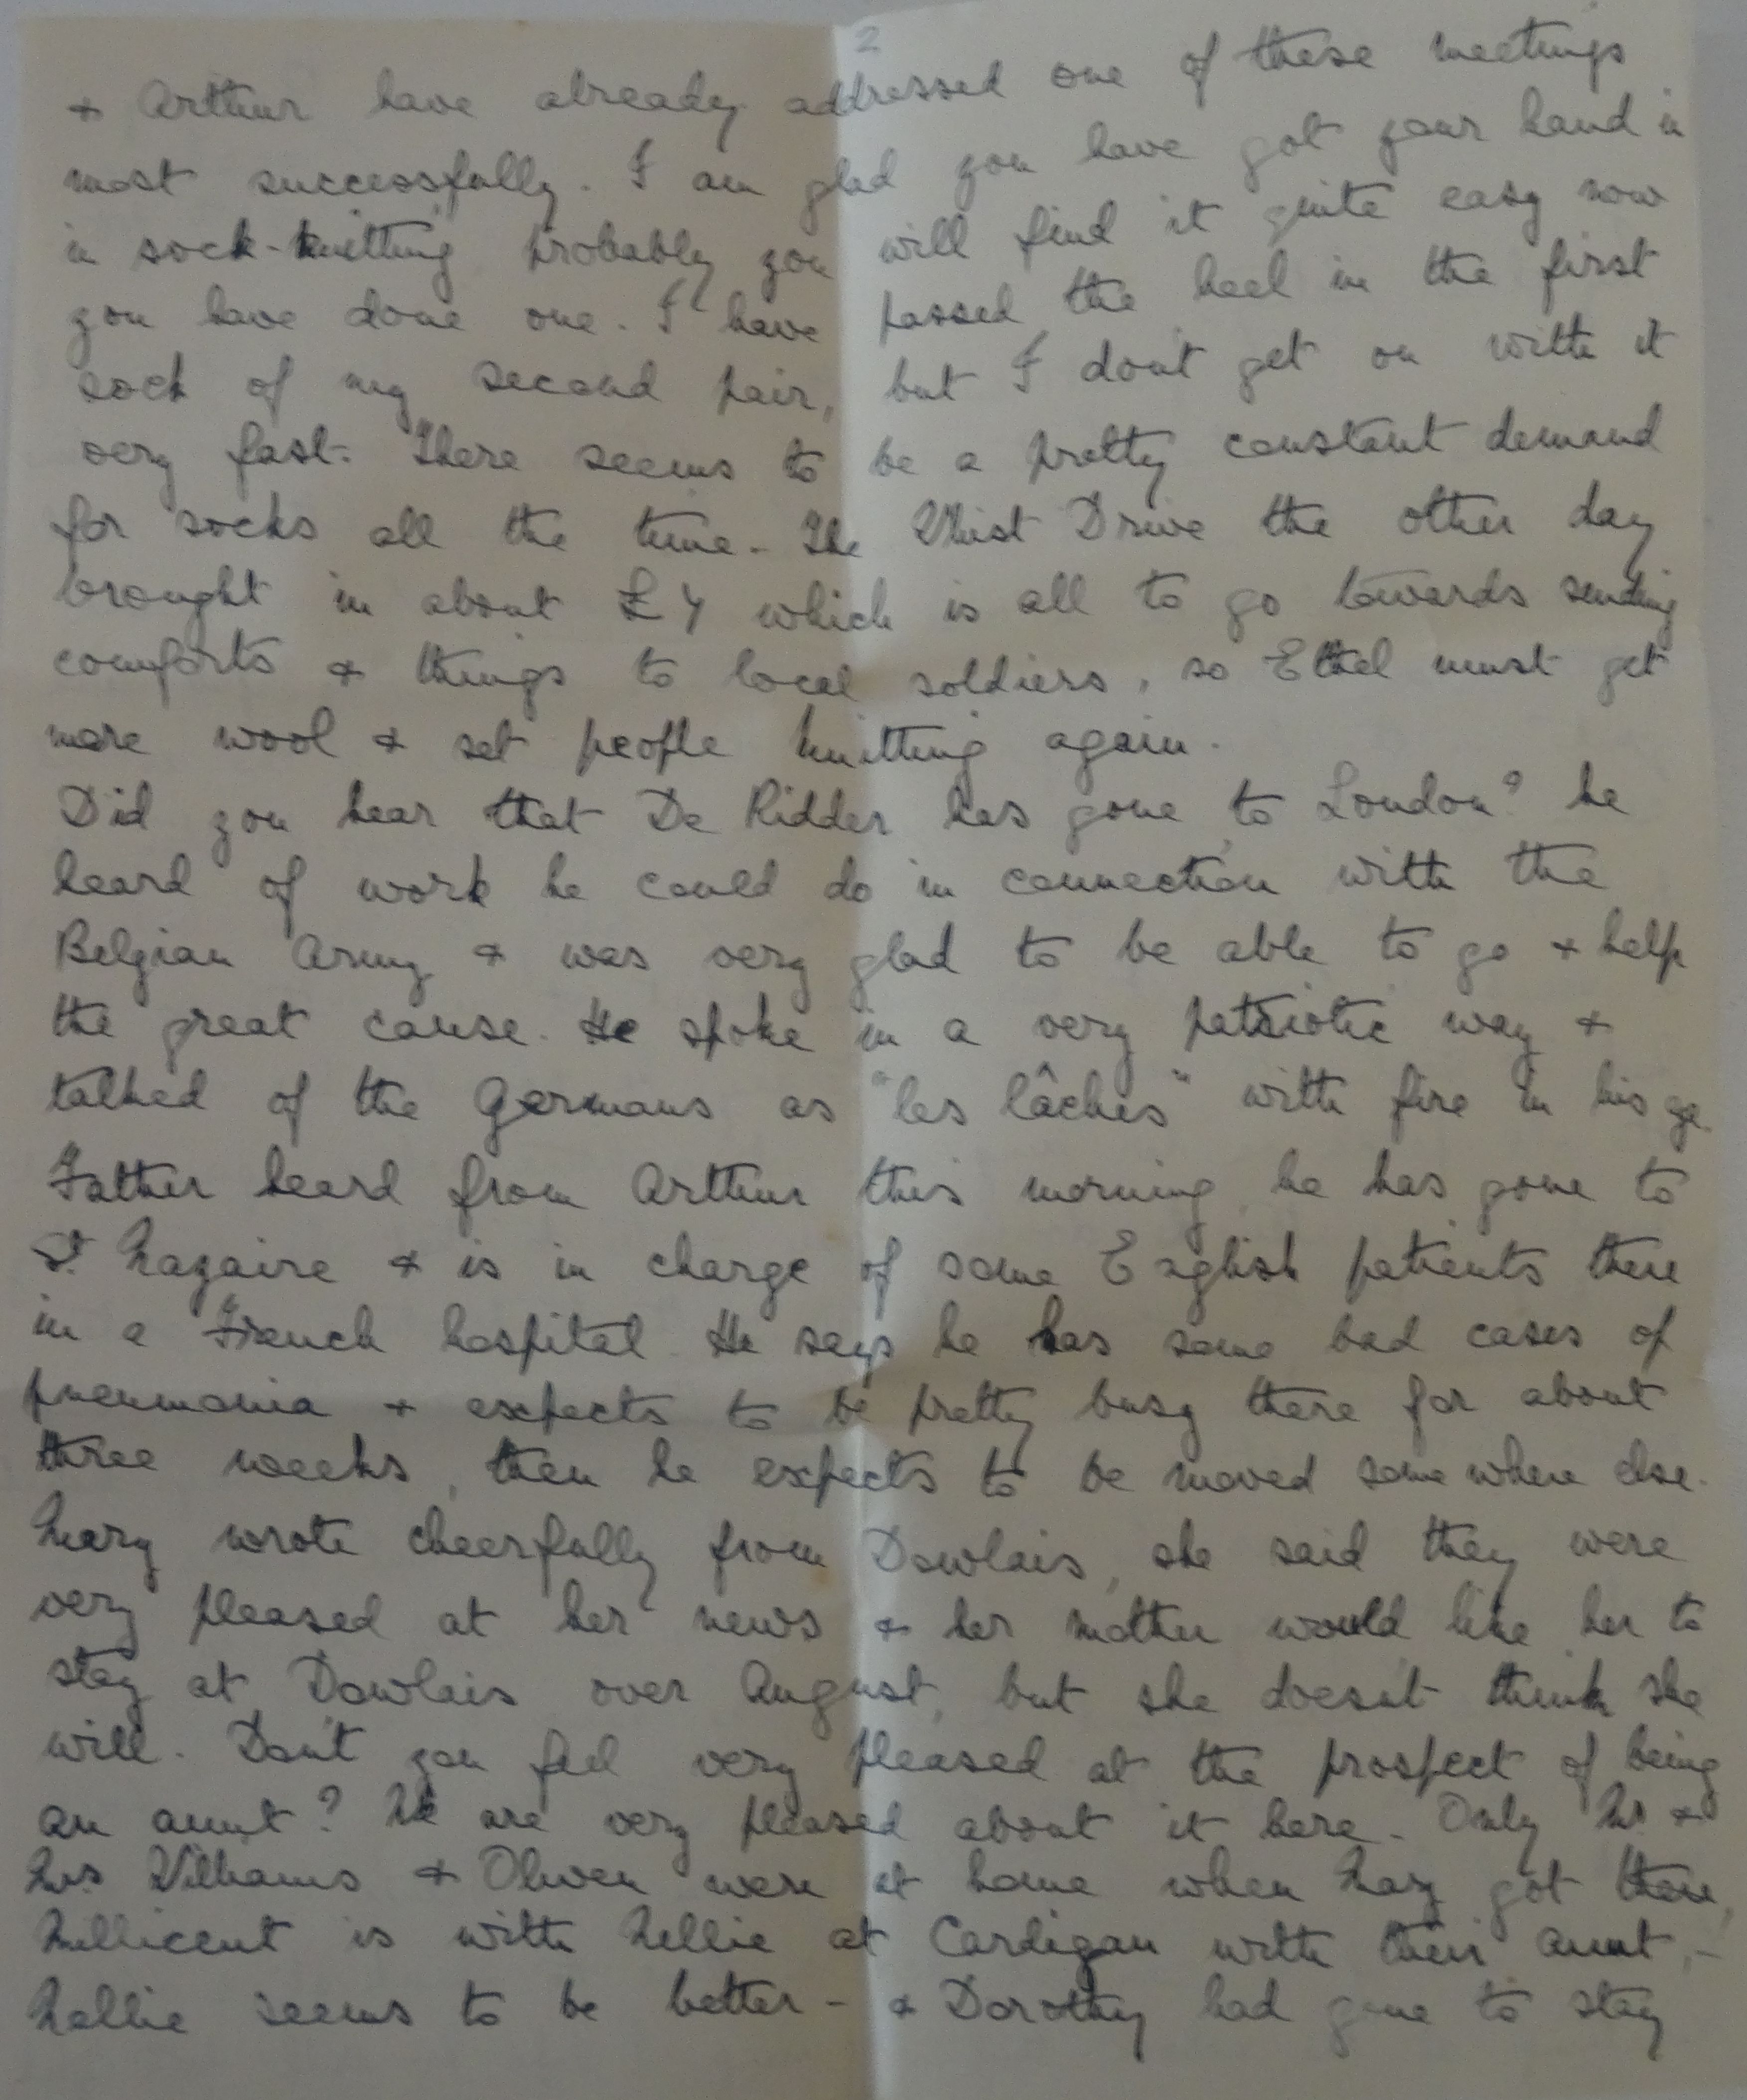 2
& Arthur have already addressed one of these meetings
most successfully. I am glad you have got your hand in
in sock-knitting probably you will find it quite easy now
you have done one. I have passed the heel in the first
sock of my second pair, but I don't get on with it
very fast. There seems to be a pretty constant demand
for socks all the time. The Whist Drive the other day
brought in about £4 which is all to go towards sending
comforts & things to local soldiers, so Ethel must get
more wool & set people knitting again.
Did you hear that De Ridder has gone to London? he
heard of work he could do in connection with the
Belgian Army & was very glad to be able to go & help
the great cause. He spoke in a very patriotic way &
talked of the Germans as "les lâches" with fire in his
Father heard from Arthur this morning, he has gone to
St. Nazaire & is in charge of some English patients there
in a French hospital. He says he has some bad cases of
pneumonia & expects to be pretty busy there for about
three weeks, then he expects to be moved somewhere else.
Mary wrote cheerfully from Dowlais, she said they were
very pleased at her news & her mother would like her to
stay at Dowlais over August, but she doesn't think she
will. Don't you feel very pleased at the prospect of being
an aunt? We are very pleased about it here. Only Mr. &
Mrs Williams & Olwen were at home when Mary got there,
Millicent is with Nellie at Cardigan with their aunt, -
Nellie seems to be better - & Dorothy had gone to stay